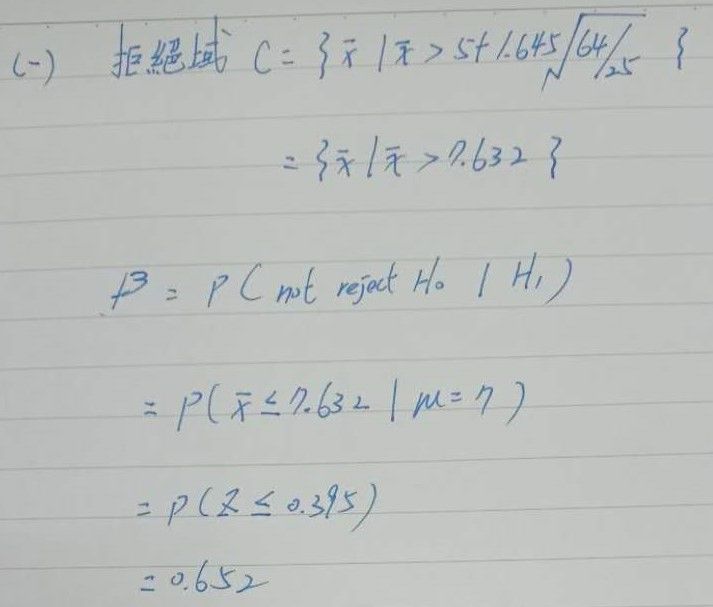 (一) 拒絕域 C = { x̄ | x̄ > 5+1.645√64/25 }
= { x̄ | x̄ > 7.632 }
β = P( not reject H₀ | H₁ )
= P( x̄ ≤ 7.632 | μ = 7 )
= P( Z ≤ 0.395)
= 0.652